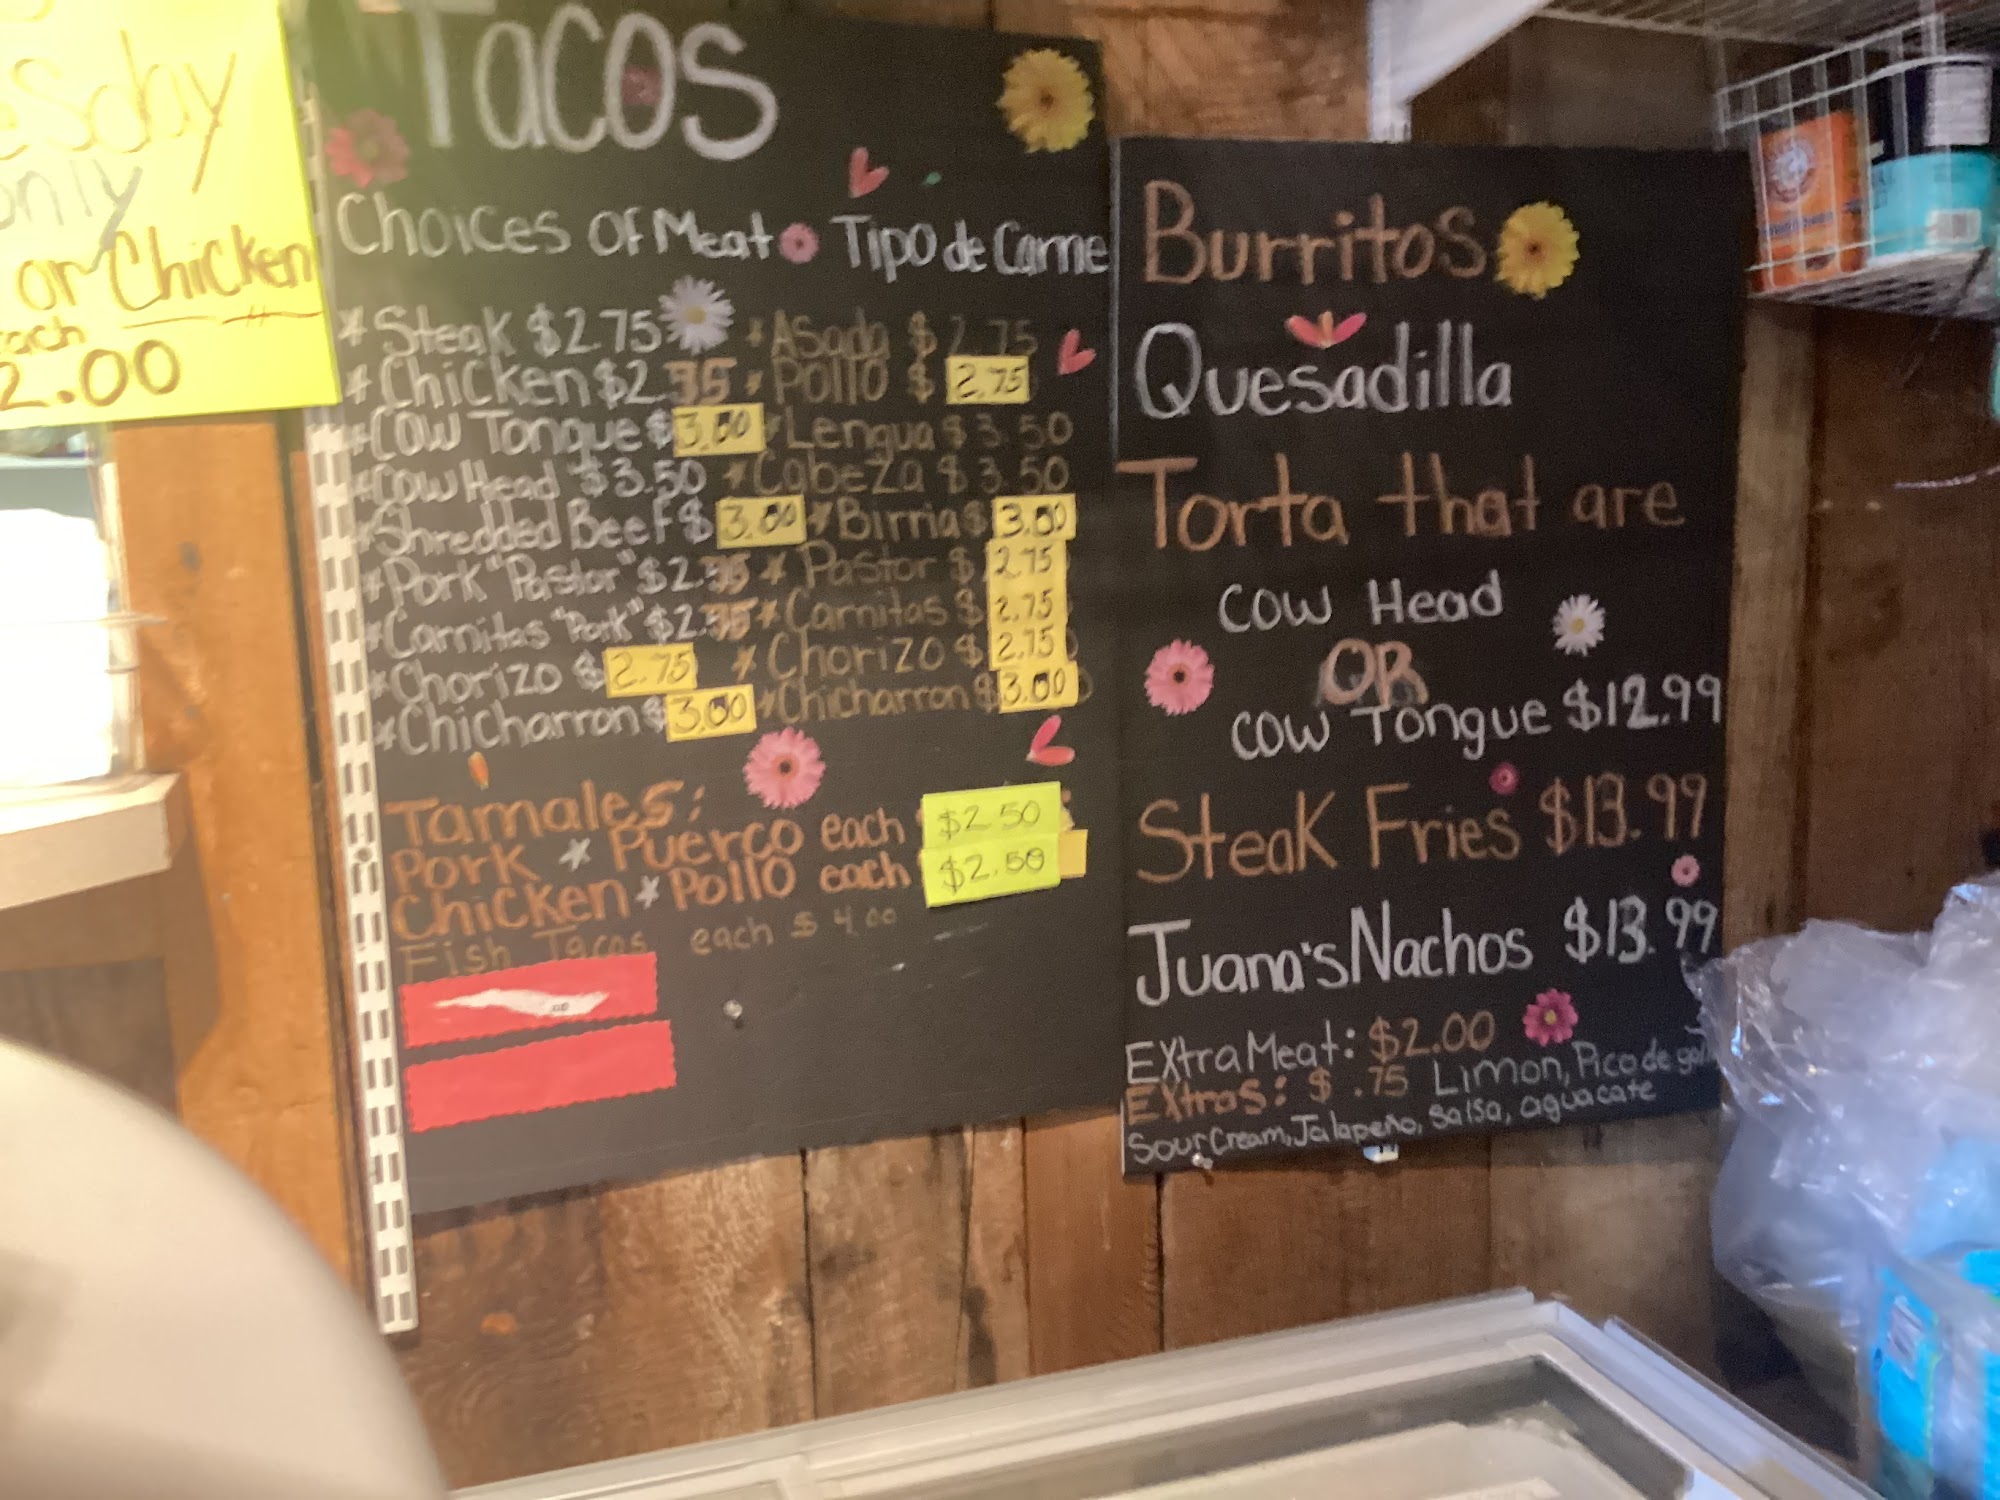 only
or Chicken
2.00
Tacos
Choices of Meat Tipo de Carne
* Steak $2.75 * Asada $2.75
* Chicken $2.75 * Pollo $2.75
* Cow Tongue $3.00 * Lengua $3.50
* Cow Head $3.50 * Cabeza $3.50
* Shredded Beef $3.00 * Birria $3.00
* Pork "Pastor" $2.75 * Pastor $2.75
* Carnitas "Pork" $2.75 * Carnitas $2.75
* Chorizo $2.75 * Chorizo $2.75
* Chicharron $3.00 * Chicharron $3.00
Tamales:
Pork * Puerco each $2.50
Chicken * Pollo each $2.50
Fish Tacos each $4.00
Burritos
Quesadilla
Torta that are
Cow Head
OR
Cow Tongue $12.99
Steak Fries $13.99
Juana's Nachos $13.99
Extra Meat: $2.00
Extras: $.75 Limon, Pico de
Sour Cream, Jalapeño, Salsa, aguacate